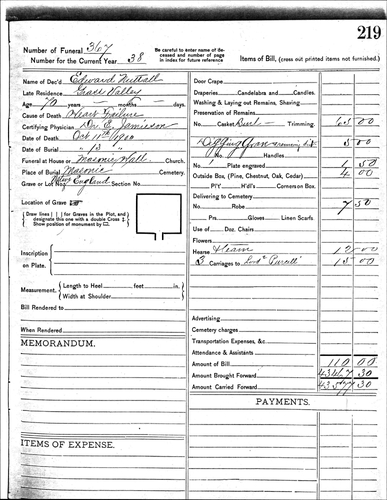 219
Number of Funeral 367
Number for the Current Year 38
Be careful to enter name of deceased and number of page in index for future reference.
Items of Bill, (cross out printed items not furnished.)
Name of Dec'd Edward Nuttall
Late Residence Grass Valley
Age 70 years - months - days.
Cause of Death Heart Failure
Certifying Physician Dr. C. Jamieson
Date of Death Oct 11th 1900
Date of Burial " 13 "
Funeral at House or Masonic Hall Church.
Place of Burial Masonic Cemetery.
Grave or Lot No. England Section No.
Location of Grave
Draw lines | | for Graves in the Plot, and designate this one with a double Cross ‡ Show position of monument by □
Inscription on Plate.
Measurement. Length to Heel feet in.
Width at Shoulder
Bill Rendered to
When Rendered
MEMORANDUM.
ITEMS OF EXPENSE.
Door Crape
Draperies Candelabra and Candles.
Washing & Laying out Remains, Shaving
Preservation of Remains
No. Casket Burl - Trimming 65 00
5 00
No. Handles
1 Plate engraved 1 50
Outside Box, (Pine, Chestnut, Oak, Cedar) 4 00
P'l'y H'd'l's Corners on Box.
Delivering to Cemetery
No. Robe 7 50
Prs. Gloves Linen Scarfs
Use of Doz. Chairs
Flowers
Hearse Team 12 00
3 Carriages to 15 00
Advertising
Cemetery charges
Transportation Expenses, &c
Attendance & Assistants
Amount of Bill 110 00
Amount Brought Forward 30
Amount Carried Forward 30
PAYMENTS.